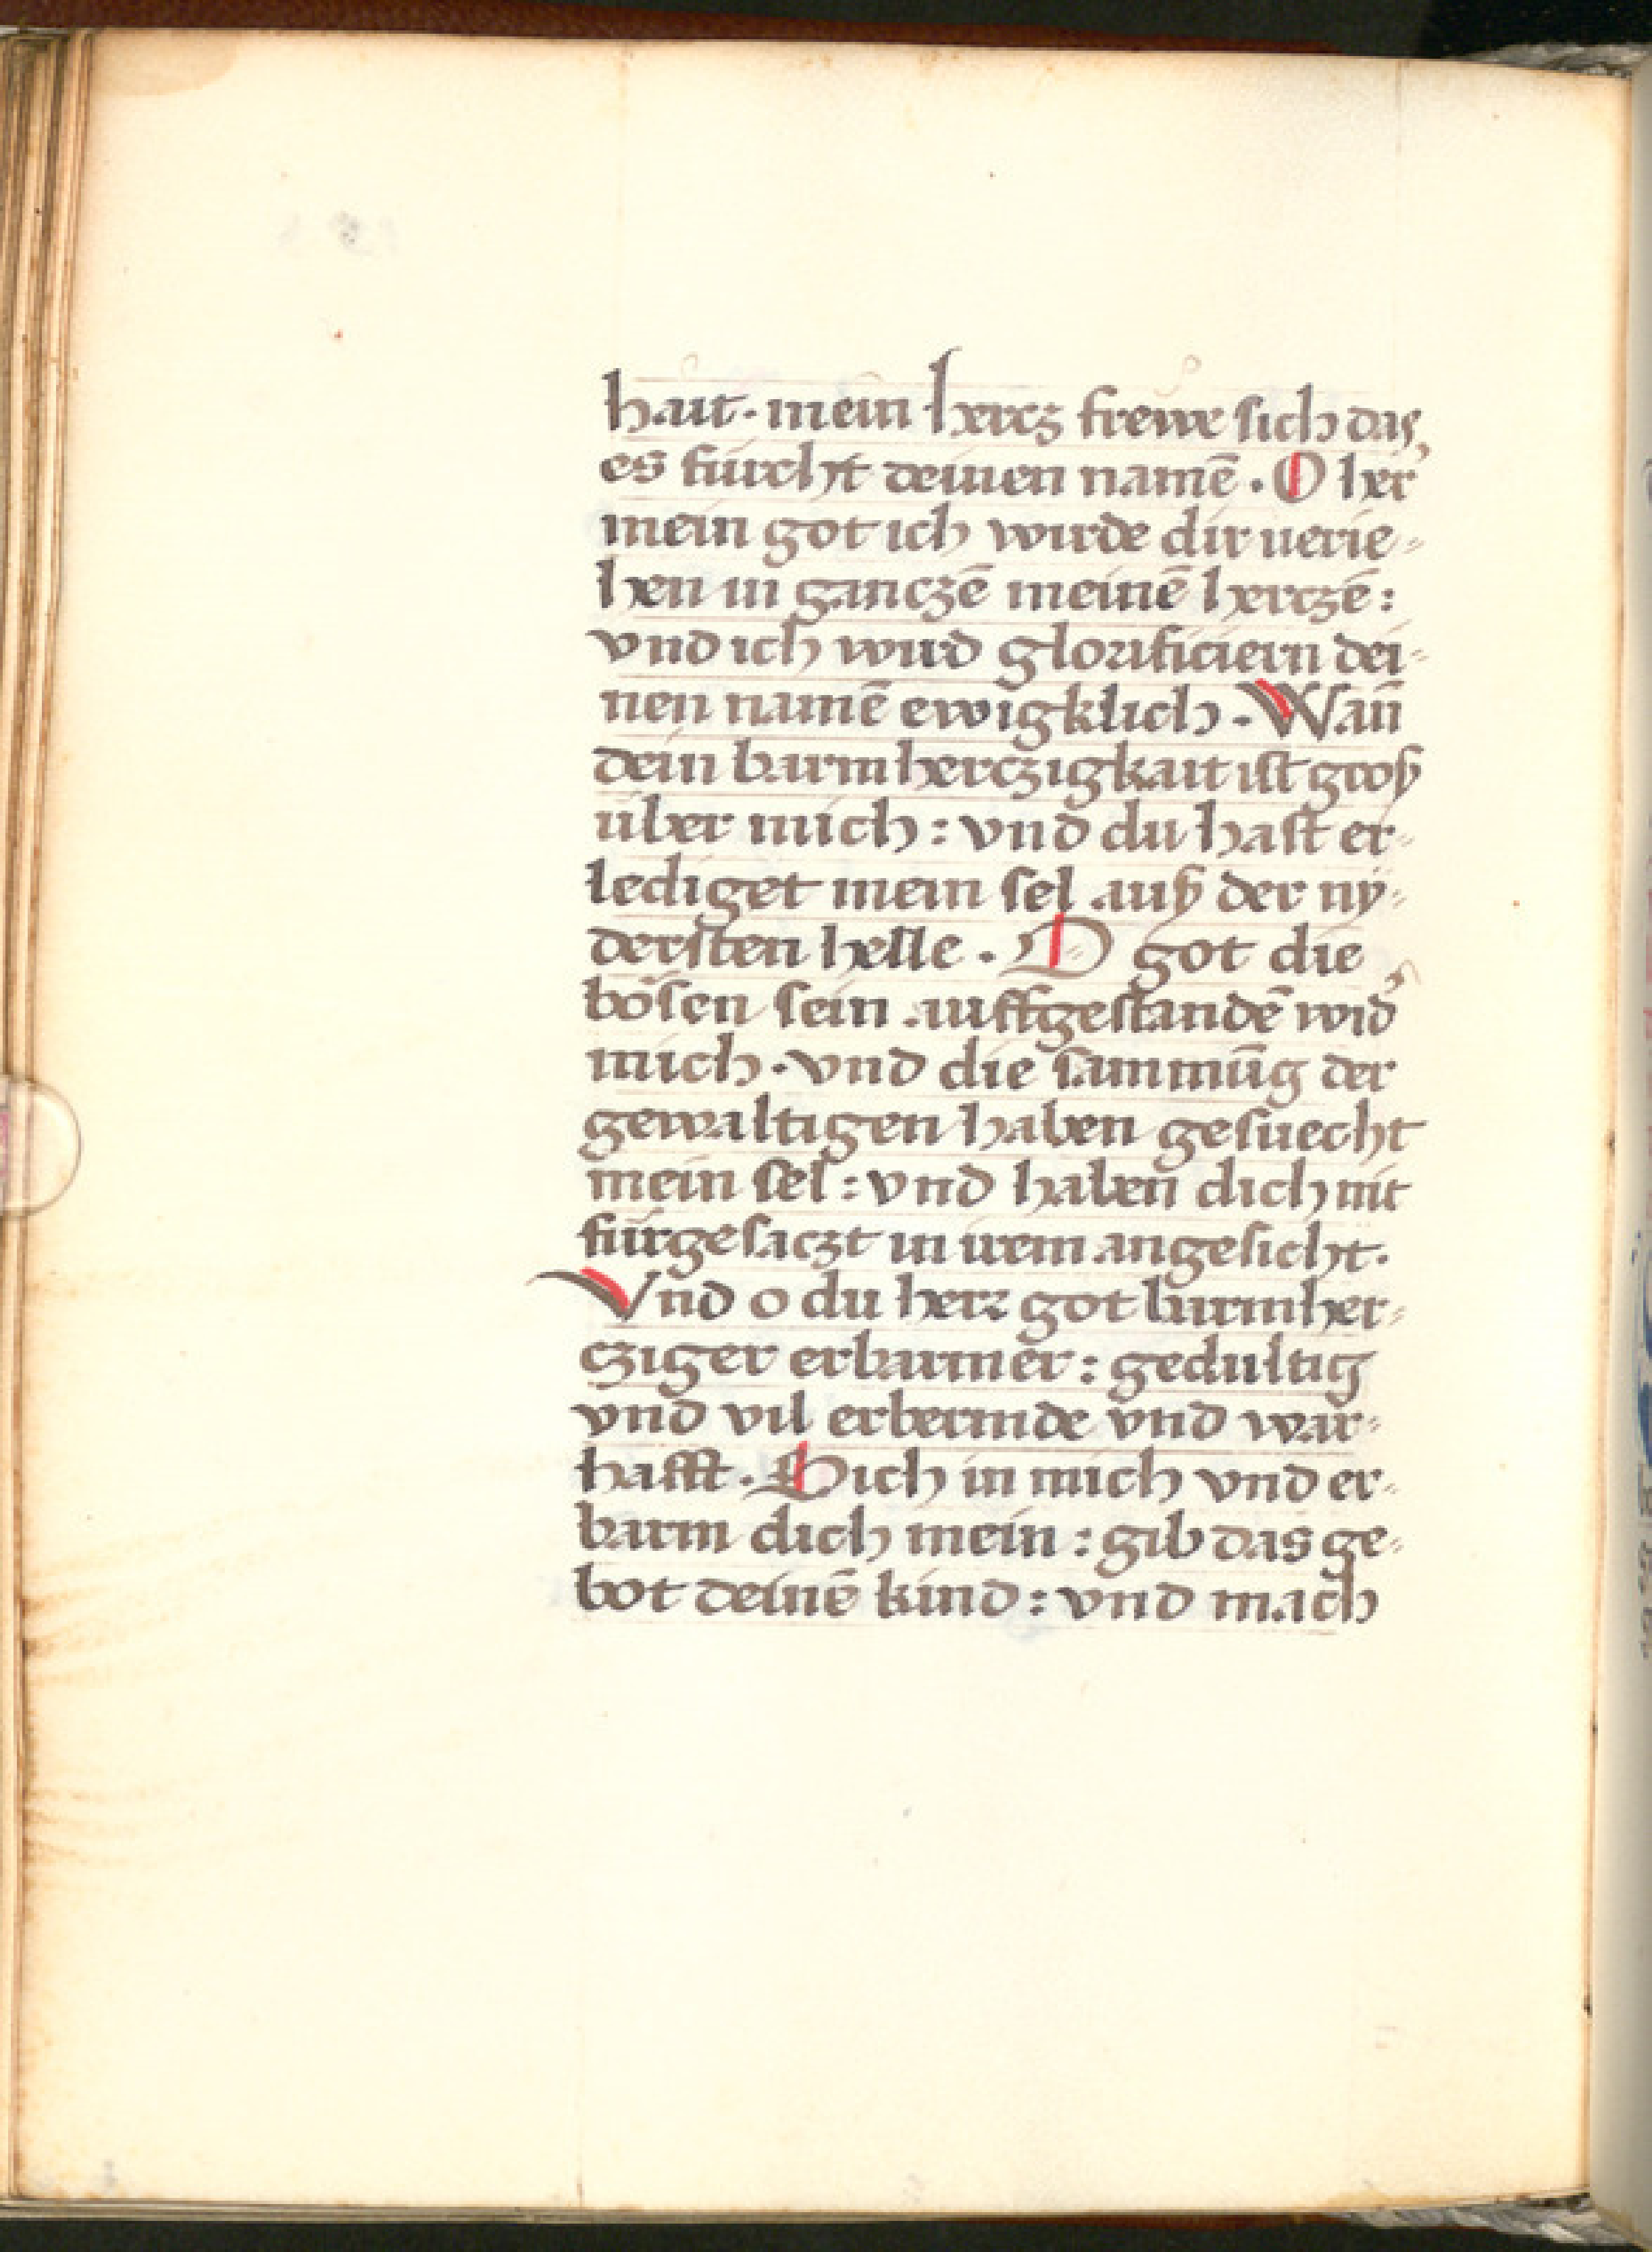 hait · mein hercz frewe sich das
es fürcht deinen namē · O her
mein got ich wirde dir uerie=
hen in ganczē meinē herczē :
vnd ich wird glorificiern dei=
nen namē ewigklich · Wañ
dein barmherczigkait ist groß
über mich : vnd du hast er=
lediget mein sel auß der ny=
dersten helle · O got die
bösen sein auffgestandē wid'
mich · vnd die sammūg der
gewaltigen haben gesuecht
mein sel : vnd haben dich nit
fürgesaczt in irem angesicht ·
Vnd o du herr got barmher=
cziger erbarmer : gedultig
vnd vil erbermde vnd war=
hafft · Sich in mich vnd er=
barm dich mein : gib das ge=
bot deinē kind : vnd mach